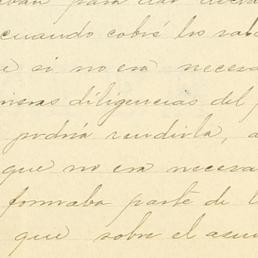 para dar
cuando cobré los
si no era neces
meras diligencias del
podría rendirla, a
que no era necesa
formaba parte de l
que sobre el asun